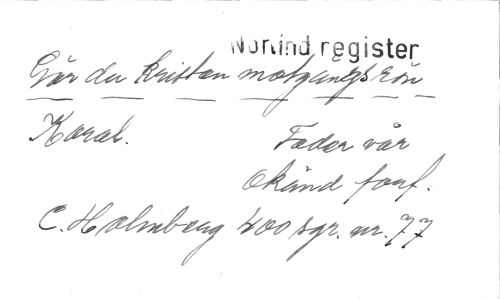 Norlind register
Går du kristen motgångs rön
Koral. Fader vår
Okänd förf.
C. Holmberg 400 sgr. nr. 77